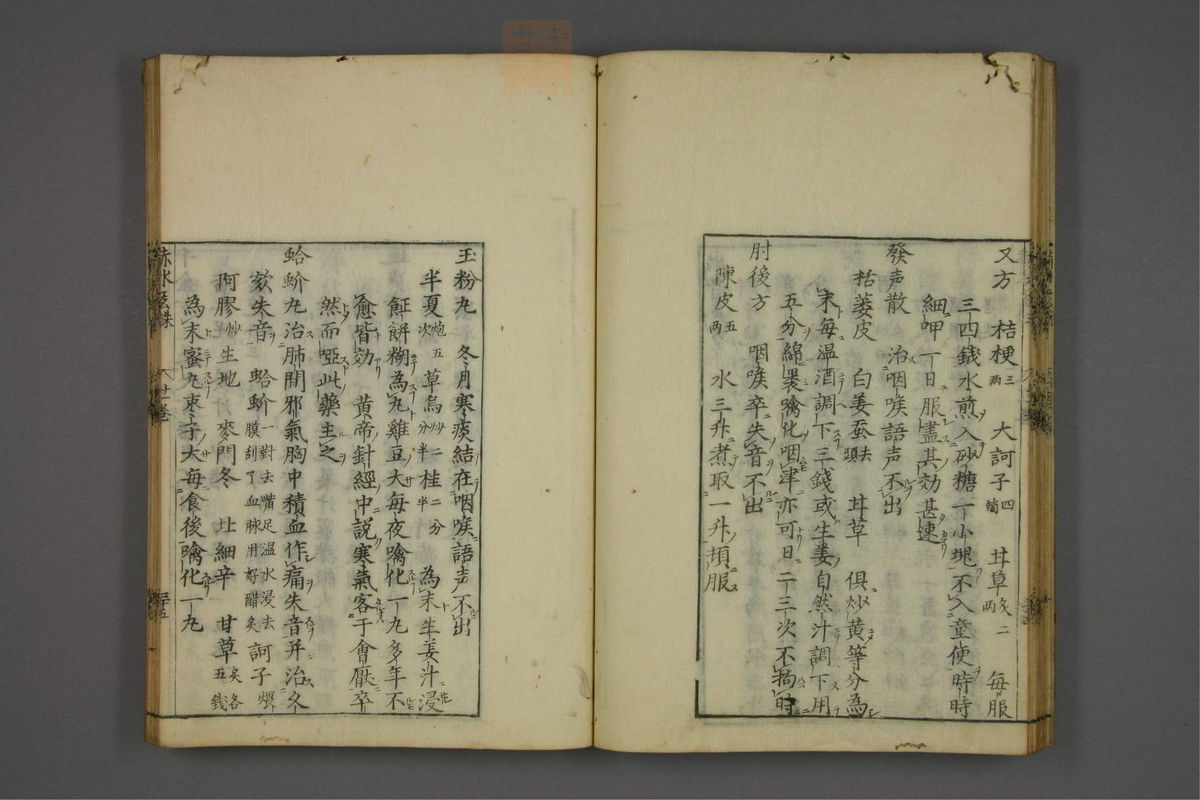 又方 桔梗三兩 大訶子四箇 甘草炙二兩 每服
三四錢水煎入砂糖一小塊不入童便時時
細呷一日服盡其効甚速
發声散 治咽喉語声不出
栝蔞皮 白姜蚕去頭 甘草 俱炒黄等分為
末每温酒調下三錢或生姜自然汁調下用
五分綿裹噙化咽津亦可日二三次不拘時
肘後方 咽喉卒失音不出
陳皮五兩 水三升煮取一升頻服
玉粉丸 冬月寒痰結在咽喉語声不出
半夏炮次五 草烏炒二分半 桂二分半 為末生姜汁浸
飪餅糊為丸雞豆大每夜噙化一丸多年不
愈皆効 黄帝針經中説寒氣客于會厭卒
然而啞此藥主之
蛤蚧丸治肺間邪氣胸中積血作痛失音并治久
欬失音 蛤蚧一對去嘴足温水浸去膜刮了血脉用好醋炙 訶子煨
阿膠炒 生地 麥門冬 北細辛 甘草炙各五錢
為末蜜丸枣子大每食後噙化一丸
赤水玄珠